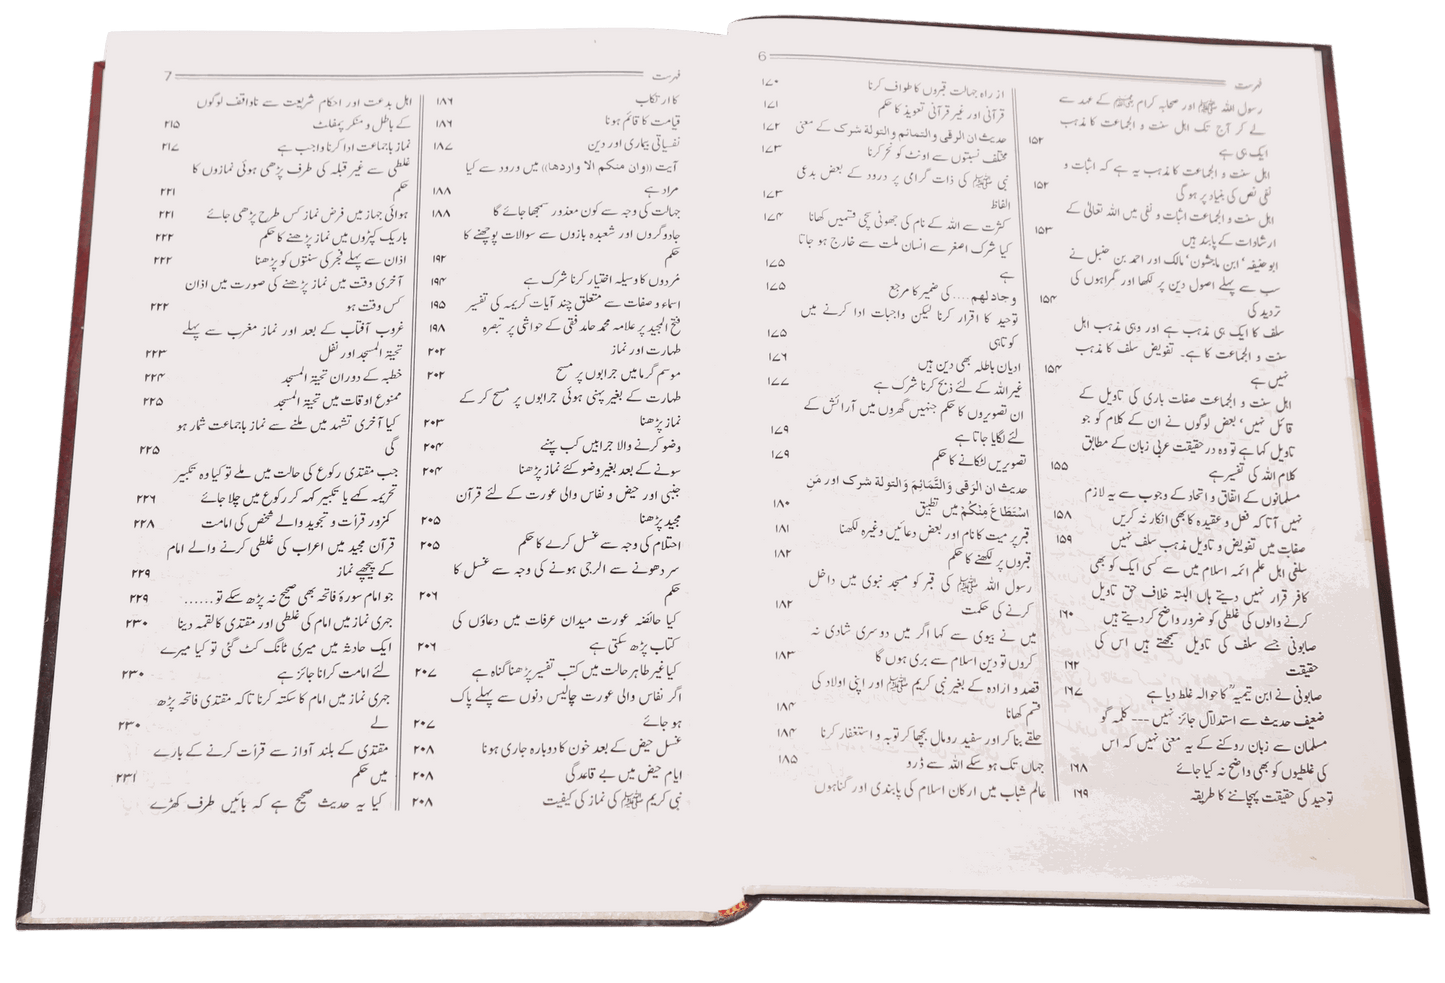 فہرست 6
رسول اللہ ﷺ اور صحابہ کرام ﷺ کے عہد سے
لے کر آج تک اہل سنت و الجماعت کا مذہب
ایک ہی ہے ۱۵۲
اہل سنت و الجماعت کا مذہب یہ ہے کہ اثبات و
نفی نص کی بنیاد پر ہو گی ۱۵۲
اہل سنت و الجماعت اثبات و نفی میں اللہ تعالیٰ کے
ارشادات کے پابند ہیں ۱۵۳
ابو حنیفہ‘ ابن ماجشون‘ مالک اور احمد بن حنبل نے
سب سے پہلے اصول دین پر لکھا اور گمراہوں کی
تردید کی ۱۵۴
سلف کا ایک ہی مذہب ہے اور وہی مذہب اہل
سنت و الجماعت کا ہے۔ تفویض سلف کا مذہب
نہیں ہے ۱۵۴
اہل سنت و الجماعت صفات باری کی تاویل کے
قائل نہیں‘ بعض لوگوں نے ان کے کلام کو جو
تاویل کہا ہے تو وہ در حقیقت عربی زبان کے مطابق
کلام اللہ کی تفسیر ہے ۱۵۵
مسلمانوں کے اتفاق و اتحاد کے وجوب سے یہ لازم
نہیں آتا کہ فعل و عقیدہ کا بھی انکار نہ کریں ۱۵۸
صفات میں تفویض و تاویل مذہب سلف نہیں ۱۵۹
سلفی اہل علم ائمہ اسلام میں سے کسی ایک کو بھی
کافر قرار نہیں دیتے ہاں البتہ خلاف حق تاویل
کرنے والوں کی غلطی کو ضرور واضح کر دیتے ہیں ۱۶۰
صابونی جسے سلف کی تاویل سمجھتے ہیں اس کی
حقیقت ۱۶۲
صابونی نے ابن تیمیہ ؒ کا حوالہ غلط دیا ہے ۱۶۷
ضعیف حدیث سے استدلال جائز نہیں --- کلمہ گو
مسلمان سے زبان روکنے کے یہ معنی نہیں کہ اس
کی غلطیوں کو بھی واضح نہ کیا جائے ۱۶۸
توحید کی حقیقت پہچاننے کا طریقہ ۱۶۹
از راہ جہالت قبروں کا طواف کرنا ۱۷۰
قرآنی اور غیر قرآنی تعویذ کا حکم ۱۷۱
حدیث ان الرقی والتمائم والتولة شرک کے معنی ۱۷۲
مختلف نسبتوں سے اونٹ کو نحر کرنا ۱۷۳
نبی ﷺ کی ذات گرامی پر درود کے بعض بدعی
الفاظ ۱۷۳
کثرت سے اللہ کے نام کی جھوٹی سچی قسمیں کھانا ۱۷۴
کیا شرک اصغر سے انسان ملت سے خارج ہو جاتا
ہے ۱۷۵
وجادلهم .... کی ضمیر کا مرجع ۱۷۵
توحید کا اقرار کرنا لیکن واجبات ادا کرنے میں
کوتاہی ۱۷۵
ادیان باطلہ بھی دین ہیں ۱۷۶
غیر اللہ کے لئے ذبح کرنا شرک ہے ۱۷۷
ان تصویروں کا حکم جنہیں گھروں میں آرائش کے
لئے لگایا جاتا ہے ۱۷۹
تصویریں لٹکانے کا حکم ۱۷۹
حدیث ان الرقی والتمائم والتولة شرک اور من
استطاع منكم میں تطبیق ۱۸۰
قبر پر میت کا نام اور بعض دعائیں وغیرہ لکھنا ۱۸۱
قبروں پر لکھنے کا حکم ۱۸۲
رسول اللہ ﷺ کی قبر کو مسجد نبوی میں داخل
کرنے کی حکمت ۱۸۲
میں نے بیوی سے کہا اگر میں دوسری شادی نہ
کروں تو دین اسلام سے بری ہوں گا ۱۸۳
قصد و ارادہ کے بغیر نبی کریم ﷺ اور اپنی اولاد کی
قسم کھانا ۱۸۴
حلقے بنا کر اور سفید رومال بچھا کر توبہ و استغفار کرنا ۱۸۴
جہاں تک ہو سکے اللہ سے ڈرو ۱۸۵
عالم شباب میں ارکان اسلام کی پابندی اور گناہوں
فہرست 7
کا ارتکاب ۱۸۶
قیامت کا قائم ہونا ۱۸۶
نفسیاتی بیماری اور دین ۱۸۷
آیت ((وان منکم الا واردها)) میں ورود سے کیا
مراد ہے ۱۸۸
جہالت کی وجہ سے کون معذور سمجھا جائے گا ۱۸۸
جادوگروں اور شعبدہ بازوں سے سوالات پوچھنے کا
حکم ۱۹۲
مُردوں کا وسیلہ اختیار کرنا شرک ہے ۱۹۴
اسماء و صفات سے متعلق چند آیات کریمہ کی تفسیر ۱۹۵
فتح المجید پر علامہ محمد حامد فقی کے حواشی پر تبصرہ ۱۹۸
طہارت اور نماز ۲۰۲
موسم گرما میں جرابوں پر مسح ۲۰۲
طہارت کے بغیر پہنی ہوئی جرابوں پر مسح کر کے
نماز پڑھنا ۲۰۳
وضو کرنے والا جرابیں کب پہنے ۲۰۴
سونے کے بعد بغیر وضو کئے نماز پڑھنا ۲۰۴
جنبی اور حیض و نفاس والی عورت کے لئے قرآن
مجید پڑھنا ۲۰۵
احتلام کی وجہ سے غسل کرے کا حکم ۲۰۵
سر دھونے سے الرجی ہونے کی وجہ سے غسل کا
حکم ۲۰۶
کیا حائضہ عورت میدان عرفات میں دعاؤں کی
کتاب پڑھ سکتی ہے ۲۰۶
کیا غیر طاہر حالت میں کتب تفسیر پڑھنا گناہ ہے ۲۰۷
اگر نفاس والی عورت چالیس دنوں سے پہلے پاک
ہو جائے ۲۰۷
غسل حیض کے بعد خون کا دوبارہ جاری ہونا ۲۰۸
ایام حیض میں بے قاعدگی ۲۰۸
نبی کریم ﷺ کی نماز کی کیفیت ۲۰۸
اہل بدعت اور احکام شریعت سے ناواقف لوگوں
کے باطل و منکر پمفلٹ ۲۱۵
نماز باجماعت ادا کرنا واجب ہے ۲۱۷
غلطی سے غیر قبلہ کی طرف پڑھی ہوئی نمازوں کا
حکم ۲۲۱
ہوائی جہاز میں فرض نماز کس طرح پڑھی جائے ۲۲۱
باریک کپڑوں میں نماز پڑھنے کا حکم ۲۲۲
اذان سے پہلے فجر کی سنتوں کو پڑھنا ۲۲۲
آخری وقت میں نماز پڑھنے کی صورت میں اذان
کس وقت ہو ۲۲۲
غروب آفتاب کے بعد اور نماز مغرب سے پہلے
تحیۃ المسجد اور نفل ۲۲۳
خطبہ کے دوران تحیۃ المسجد ۲۲۴
ممنوع اوقات میں تحیۃ المسجد ۲۲۵
کیا آخری تشہد میں ملنے سے نماز باجماعت شمار ہو
گی ۲۲۵
جب مقتدی رکوع کی حالت میں ملے تو کیا وہ تکبیر
تحریمہ کہے یا تکبیر کہہ کر رکوع میں چلا جائے ۲۲۶
کمزور قرأت و تجوید والے شخص کی امامت ۲۲۸
قرآن مجید میں اعراب کی غلطی کرنے والے امام
کے پیچھے نماز ۲۲۹
جو امام سورۂ فاتحہ بھی صحیح نہ پڑھ سکے تو...... ۲۲۹
جہری نماز میں امام کی غلطی اور مقتدی کا لقمہ دینا ۲۳۰
ایک حادثہ میں میری ٹانگ کٹ گئی تو کیا میرے
لئے امامت کرانا جائز ہے ۲۳۰
جہری نماز میں امام کا سکتہ کرنا تاکہ مقتدی فاتحہ پڑھ
لے ۲۳۰
مقتدی کے بلند آواز سے قرأت کرنے کے بارے
میں حکم ۲۳۱
کیا یہ حدیث صحیح ہے کہ بائیں طرف کھڑے